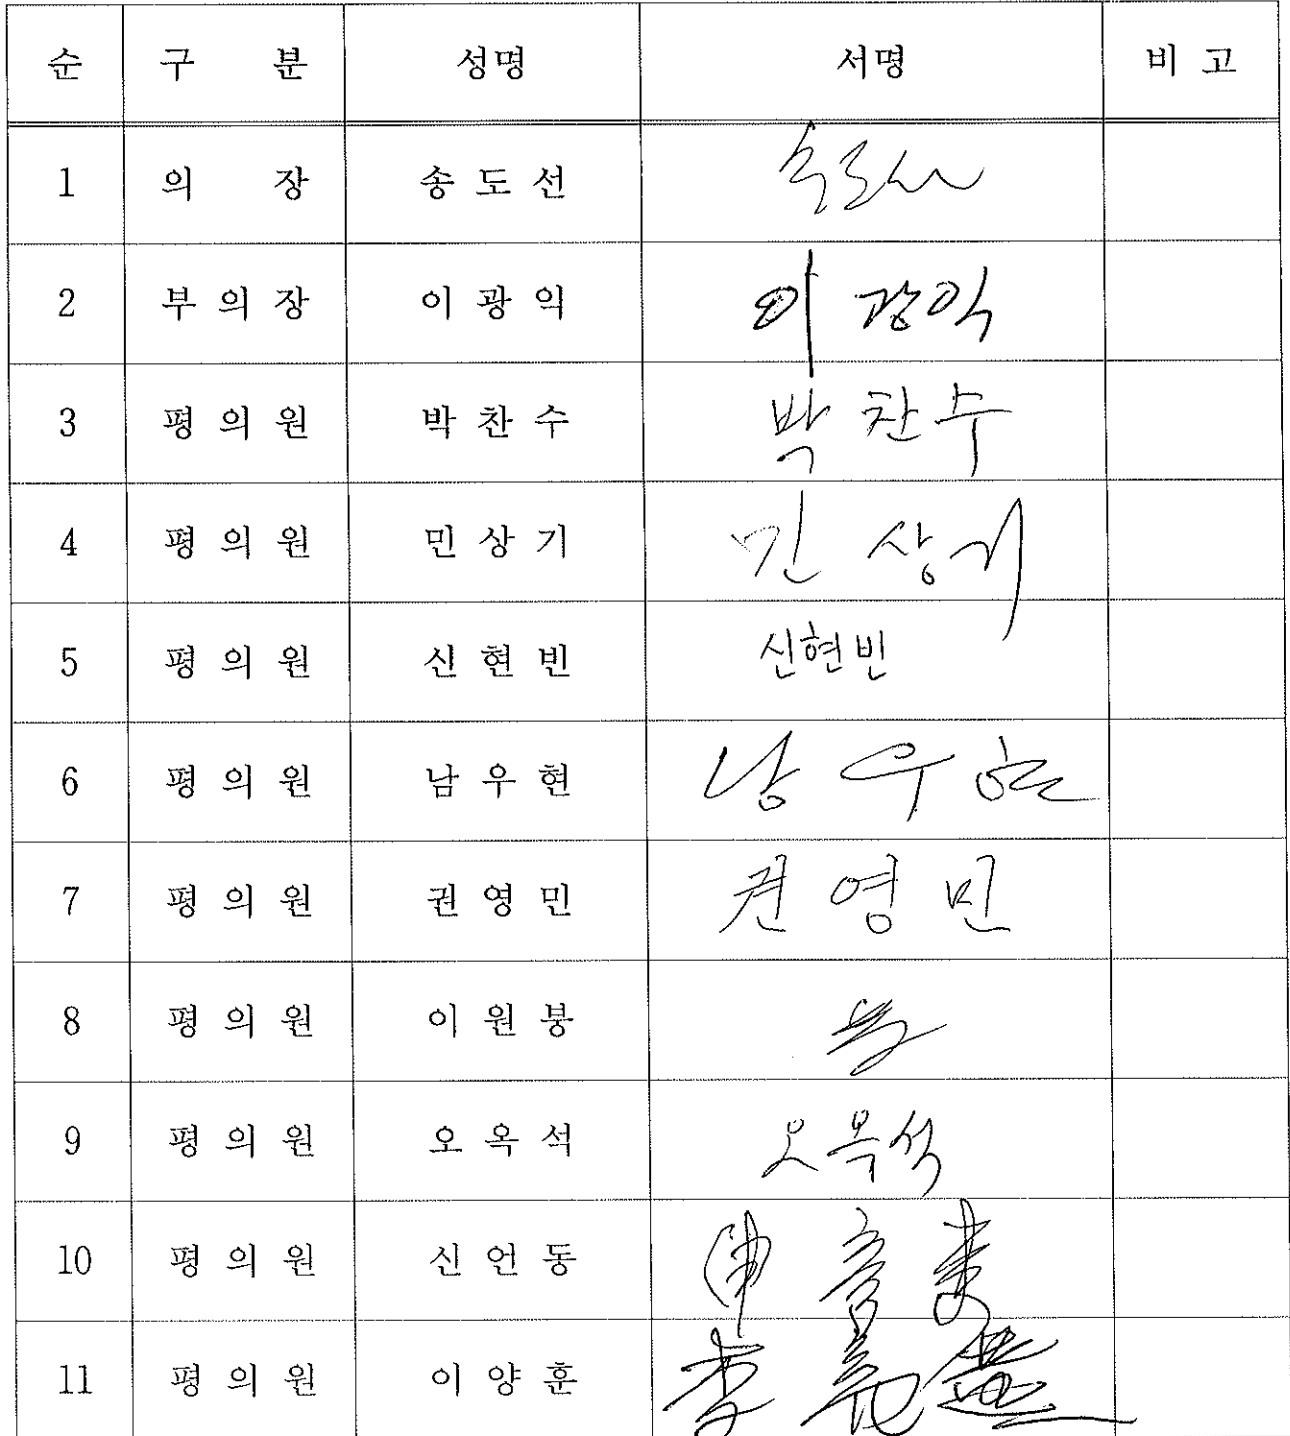 순 구 분 성명 서명 비 고
1 의 장 송 도 선 송도선
2 부 의 장 이 광 익 이 광익
3 평 의 원 박 찬 수 박 찬수
4 평 의 원 민 상 기 민 상기
5 평 의 원 신 현 빈 신현빈
6 평 의 원 남 우 현 남 우 현
7 평 의 원 권 영 민 권 영 민
8 평 의 원 이 원 붕
9 평 의 원 오 옥 석 오옥석
10 평 의 원 신 언 동 申 彦 東
11 평 의 원 이 양 훈 李